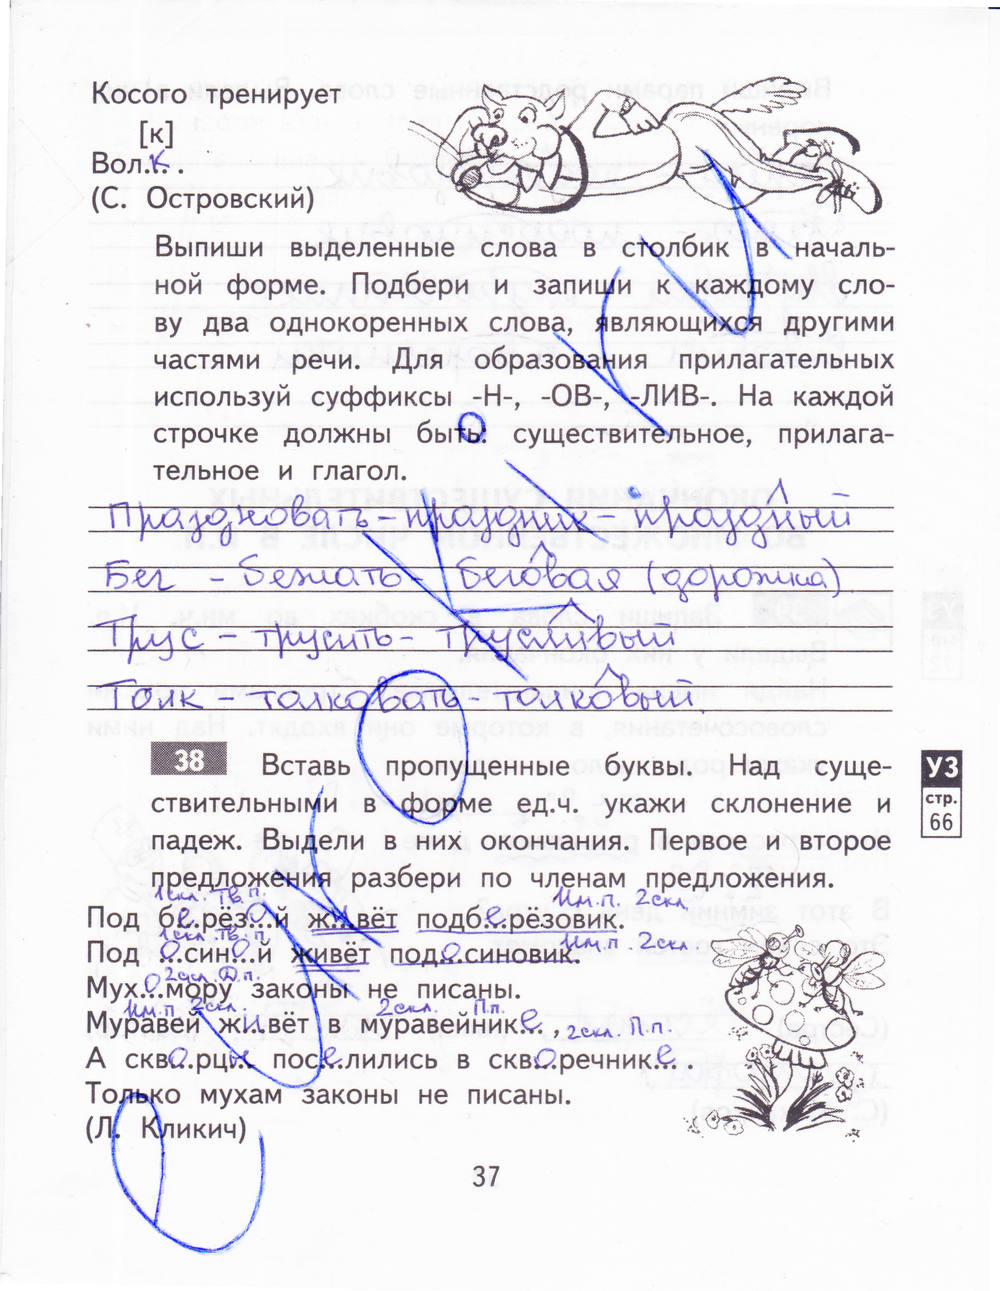 Косого тренирует
[к]
Вол.к. .
(С. Островский)
Выпиши выделенные слова в столбик в началь-
ной форме. Подбери и запиши к каждому сло-
ву два однокоренных слова, являющихся другими
частями речи. Для образования прилагательных
используй суффиксы -Н-, -ОВ-, -ЛИВ-. На каждой
строчке должны быть: существительное, прилага-
тельное и глагол.
Праздновать - праздник - праздный
Бег - бежать - беговая (дорожка)
Трус - трусить - трусливый
Толк - толковать - толковый.
38 Вставь пропущенные буквы. Над суще-
ствительными в форме ед.ч. укажи склонение и
падеж. Выдели в них окончания. Первое и второе
предложения разбери по членам предложения.
УЗ
стр.
66
1скл. Тв.п. Им.п. 2скл.
Под бе.рёз.о.й живёт подбе.рёзовик.
1скл. Тв.п. Им.п 2скл.
Под .о.син.о.й живёт под.о.синовик.
2скл. Д.п.
Мух.о.мору законы не писаны.
Им.п. 2скл. 2скл. П.п.
Муравей живёт в муравейник.е. ,
2скл. П.п.
А сква.рцы. пос.е.лились в скво.речник.е. .
Только мухам законы не писаны.
(Л. Кликич)
37